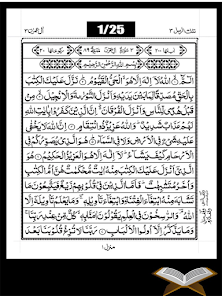 تلك الرسل ٣
1/25
آل عمران ٣
بِسْمِ اللّٰهِ الرَّحْمٰنِ الرَّحِیْمِ
الٓمّٓ اللّٰهُ لَآ اِلٰهَ اِلَّا هُوَ الْحَیُّ الْقَیُّوْمُ نَزَّلَ عَلَیْكَ الْكِتٰبَ
بِالْحَقِّ مُصَدِّقًا لِّمَا بَیْنَ یَدَیْهِ وَاَنْزَلَ التَّوْرٰىةَ وَالْاِنْجِیْلَ مِنْ
قَبْلُ هُدًی لِّلنَّاسِ وَاَنْزَلَ الْفُرْقَانَ اِنَّ الَّذِیْنَ كَفَرُوْا بِاٰیٰتِ اللّٰهِ
لَهُمْ عَذَابٌ شَدِیْدٌ وَاللّٰهُ عَزِیْزٌ ذُو انْتِقَامٍ اِنَّ اللّٰهَ لَا یَخْفٰی
عَلَیْهِ شَیْءٌ فِی الْاَرْضِ وَلَا فِی السَّمَآءِ هُوَ الَّذِیْ یُصَوِّرُكُمْ فِی
الْاَرْحَامِ كَیْفَ یَشَآءُ لَآ اِلٰهَ اِلَّا هُوَ الْعَزِیْزُ الْحَكِیْمُ هُوَ
الَّذِیْ اَنْزَلَ عَلَیْكَ الْكِتٰبَ مِنْهُ اٰیٰتٌ مُّحْكَمٰتٌ هُنَّ اُمُّ الْكِتٰبِ
وَاُخَرُ مُتَشٰبِهٰتٌ فَاَمَّا الَّذِیْنَ فِیْ قُلُوْبِهِمْ زَیْغٌ فَیَتَّبِعُوْنَ مَا
تَشَابَهَ مِنْهُ ابْتِغَآءَ الْفِتْنَةِ وَابْتِغَآءَ تَاْوِیْلِهٖ وَمَا یَعْلَمُ تَاْوِیْلَهٗٓ اِلَّا
اللّٰهُ وَالرّٰسِخُوْنَ فِی الْعِلْمِ یَقُوْلُوْنَ اٰمَنَّا بِهٖ كُلٌّ مِّنْ عِنْدِ رَبِّنَا
وَمَا یَذَّكَّرُ اِلَّآ اُولُوا الْاَلْبَابِ رَبَّنَا لَا تُزِغْ قُلُوْبَنَا بَعْدَ
منزل ١